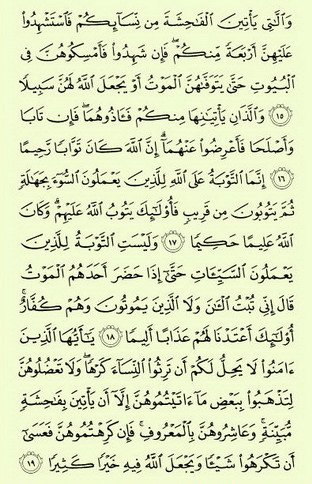 وَٱلَّٰتِى يَأْتِينَ ٱلْفَٰحِشَةَ مِن نِّسَآئِكُمْ فَٱسْتَشْهِدُوا۟
عَلَيْهِنَّ أَرْبَعَةً مِّنكُمْ ۖ فَإِن شَهِدُوا۟ فَأَمْسِكُوهُنَّ فِى
ٱلْبُيُوتِ حَتَّىٰ يَتَوَفَّىٰهُنَّ ٱلْمَوْتُ أَوْ يَجْعَلَ ٱللَّهُ لَهُنَّ سَبِيلًا
١٥ وَٱلَّذَانِ يَأْتِيَٰنِهَا مِنكُمْ فَـَٔاذُوهُمَا ۖ فَإِن تَابَا
وَأَصْلَحَا فَأَعْرِضُوا۟ عَنْهُمَآ ۗ إِنَّ ٱللَّهَ كَانَ تَوَّابًا رَّحِيمًا
١٦ إِنَّمَا ٱلتَّوْبَةُ عَلَى ٱللَّهِ لِلَّذِينَ يَعْمَلُونَ ٱلسُّوٓءَ بِجَهَٰلَةٍ
ثُمَّ يَتُوبُونَ مِن قَرِيبٍ فَأُو۟لَٰٓئِكَ يَتُوبُ ٱللَّهُ عَلَيْهِمْ ۗ وَكَانَ
ٱللَّهُ عَلِيمًا حَكِيمًا ١٧ وَلَيْسَتِ ٱلتَّوْبَةُ لِلَّذِينَ
يَعْمَلُونَ ٱلسَّيِّـَٔاتِ حَتَّىٰٓ إِذَا حَضَرَ أَحَدَهُمُ ٱلْمَوْتُ
قَالَ إِنِّى تُبْتُ ٱلْـَٰٔنَ وَلَا ٱلَّذِينَ يَمُوتُونَ وَهُمْ كُفَّارٌ ۚ
أُو۟لَٰٓئِكَ أَعْتَدْنَا لَهُمْ عَذَابًا أَلِيمًا ١٨ يَٰٓأَيُّهَا ٱلَّذِينَ
ءَامَنُوا۟ لَا يَحِلُّ لَكُمْ أَن تَرِثُوا۟ ٱلنِّسَآءَ كَرْهًا ۖ وَلَا تَعْضُلُوهُنَّ
لِتَذْهَبُوا۟ بِبَعْضِ مَآ ءَاتَيْتُمُوهُنَّ إِلَّآ أَن يَأْتِينَ بِفَٰحِشَةٍ
مُّبَيِّنَةٍ ۚ وَعَاشِرُوهُنَّ بِٱلْمَعْرُوفِ ۚ فَإِن كَرِهْتُمُوهُنَّ فَعَسَىٰٓ
أَن تَكْرَهُوا۟ شَيْـًٔا وَيَجْعَلَ ٱللَّهُ فِيهِ خَيْرًا كَثِيرًا ١٩